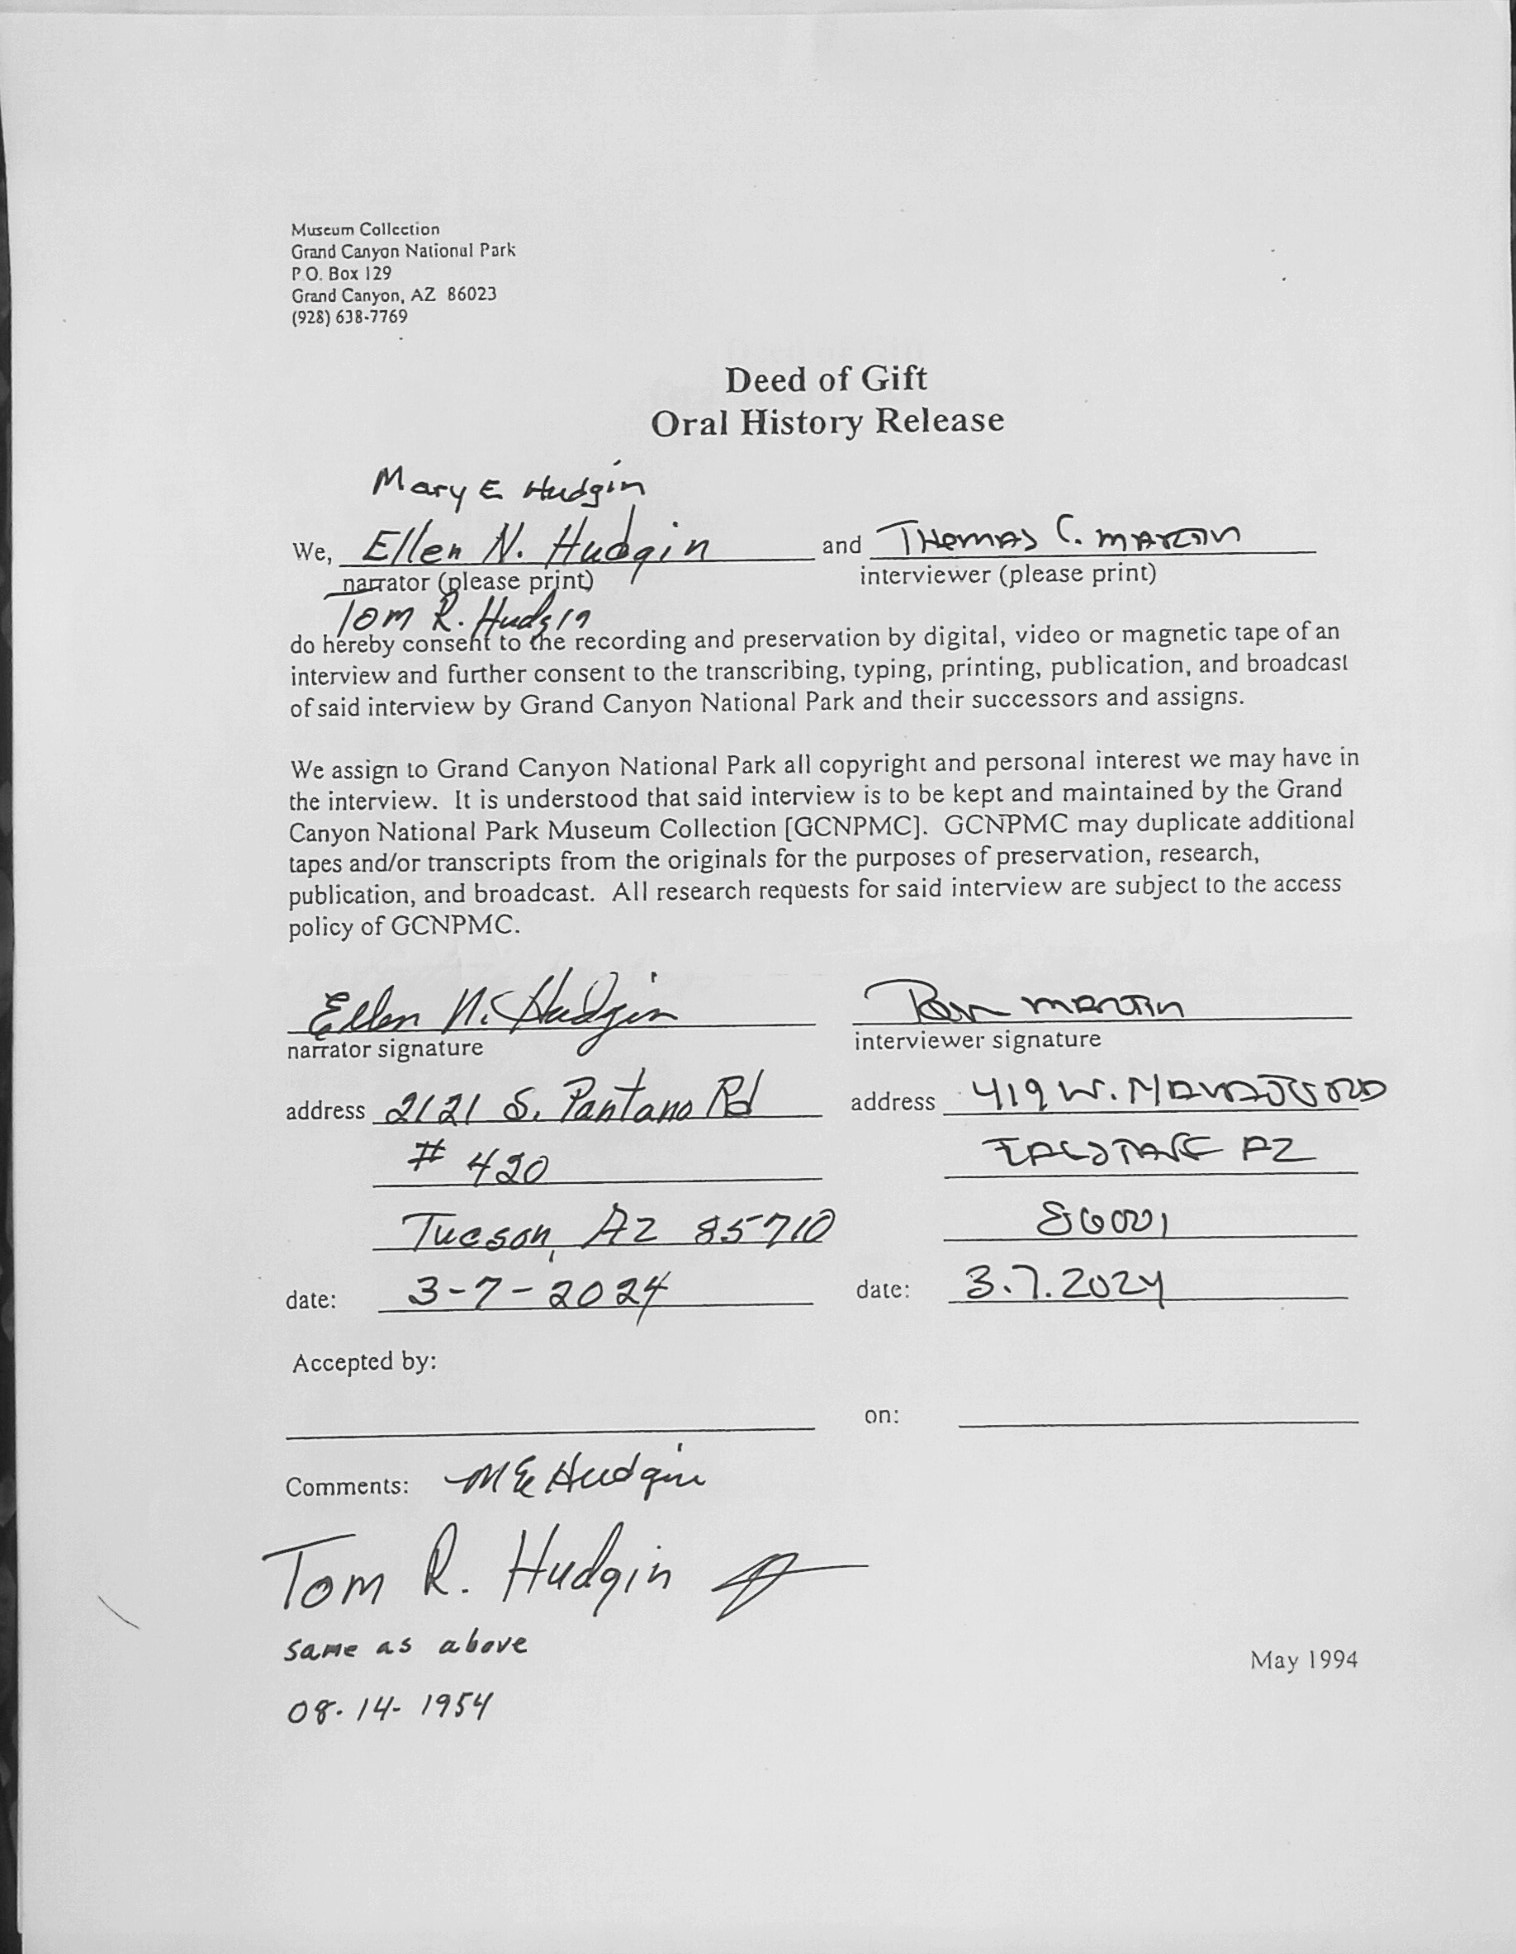 Museum Collection
Grand Canyon National Park
P.O. Box 129
Grand Canyon, AZ 86023
(928) 638-7769
Deed of Gift
Oral History Release
Mary E Hudgin
We, Ellen N. Hudgin and THOMAS C. MARTIN
narrator (please print) interviewer (please print)
Tom R. Hudgin
do hereby consent to the recording and preservation by digital, video or magnetic tape of an
interview and further consent to the transcribing, typing, printing, publication, and broadcast
of said interview by Grand Canyon National Park and their successors and assigns.
We assign to Grand Canyon National Park all copyright and personal interest we may have in
the interview. It is understood that said interview is to be kept and maintained by the Grand
Canyon National Park Museum Collection [GCNPMC]. GCNPMC may duplicate additional
tapes and/or transcripts from the originals for the purposes of preservation, research,
publication, and broadcast. All research requests for said interview are subject to the access
policy of GCNPMC.
Ellen N. Hudgin Tom MARTIN
narrator signature interviewer signature
address 2121 S. Pantano Rd address 419 W. NAVAJO RD
# 420 FLAGSTAFF AZ
Tucson, AZ 85710 86001
date: 3-7-2024 date: 3.7.2024
Accepted by:
on:
Comments: ME Hudgin
Tom R. Hudgin
same as above
May 1994
08-14-1954